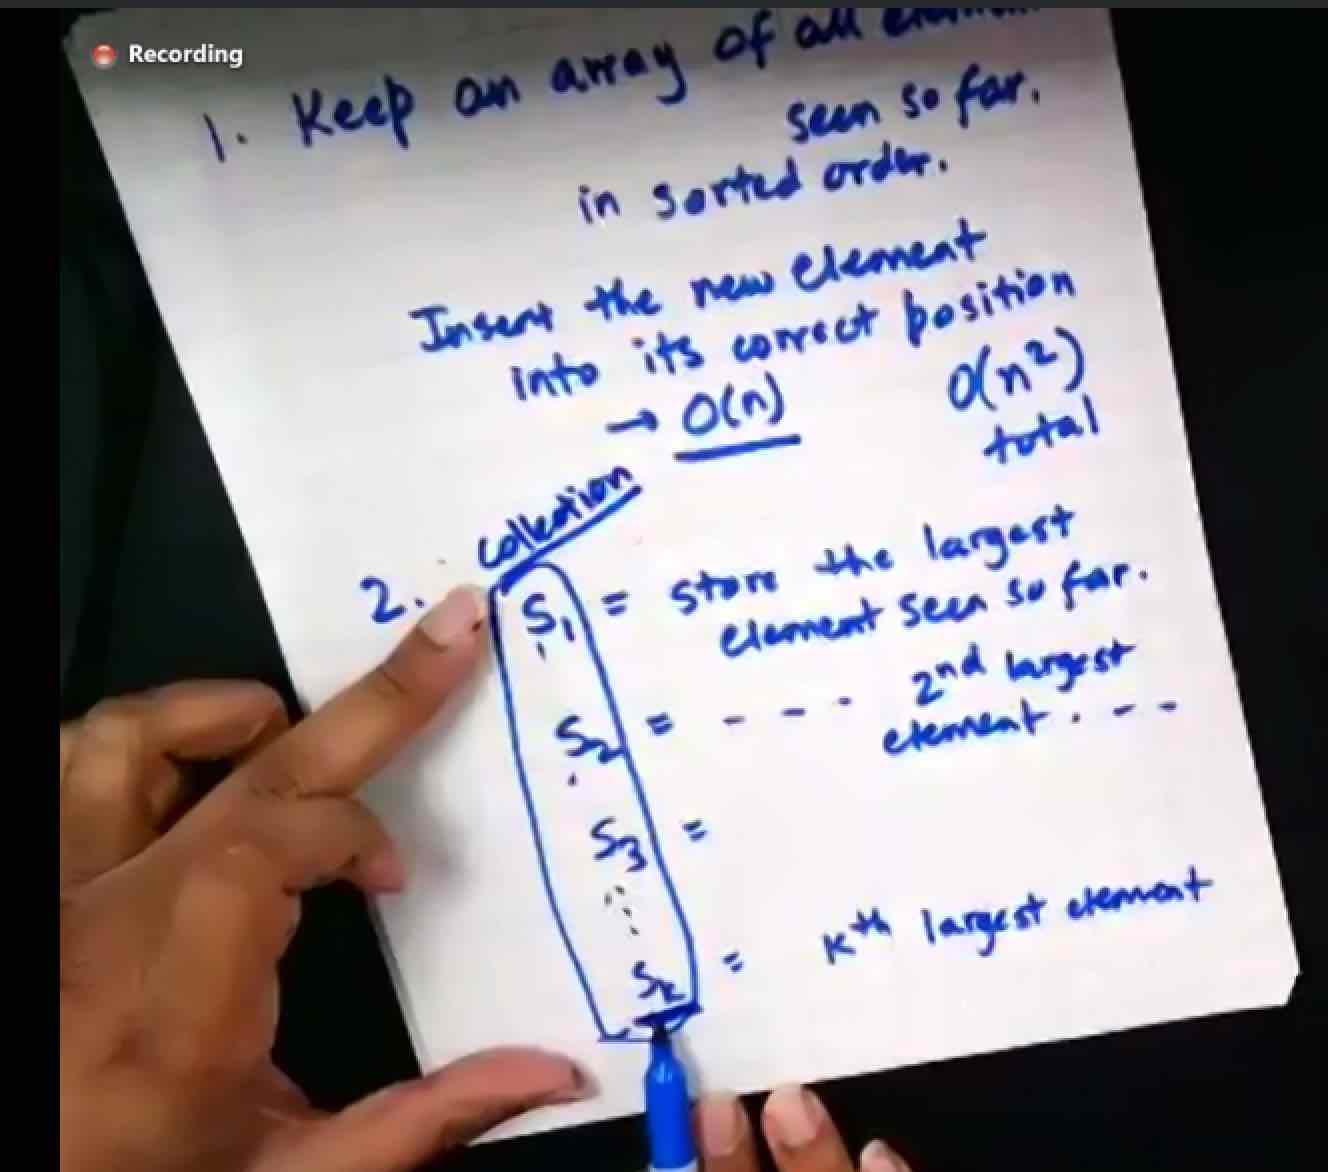 Recording
1. Keep an array of all
seen so far.
in sorted order.
Insert the new element
into its correct position
→ O(n)
O(n²)
total
collection
2.
S₁ = store the largest
element seen so far.
S₂ = - - - 2nd largest
element . - -
S₃ =
⋮
Sₖ = Kth largest element